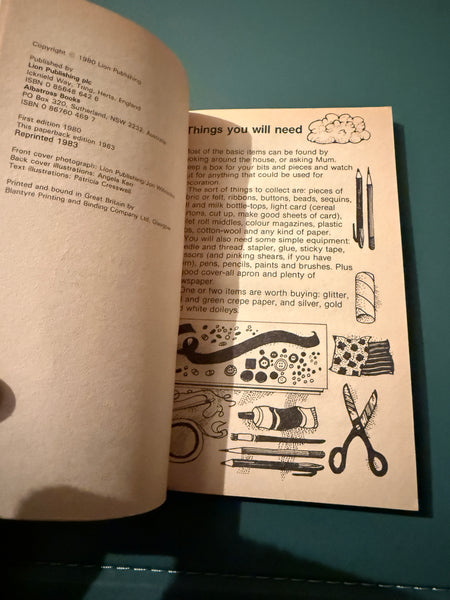 Copyright © 1980 Lion Publishing
Published by
Lion Publishing plc
Icknield Way, Tring, Herts, England
ISBN 0 85648 642 6
Albatross Books
PO Box 320, Sutherland, NSW 2232, Australia
ISBN 0 86760 469 7
First edition 1980
This paperback edition 1983
Reprinted 1983
Front cover photograph: Lion Publishing/Jon Willcocks
Back cover illustrations: Angela Kerr
Text illustrations: Patricia Cresswell
Printed and bound in Great Britain by
Blantyre Printing and Binding Company Ltd, Glasgow
Things you will need
Most of the basic items can be found by
looking around the house, or asking Mum.
a box for your bits and pieces and watch
out for anything that could be used for
decoration.
The sort of things to collect are: pieces of
or felt, ribbons, buttons, beads, sequins,
and milk bottle-tops, light card (cereal
cut up, make good sheets of card),
roll middles, colour magazines, plastic
cotton-wool and any kind of paper.
You will also need some simple equipment:
needle and thread, stapler, glue, sticky tape,
scissors (and pinking shears, if you have
pens, pencils, paints and brushes. Plus
good cover-all apron and plenty of
newspaper.
One or two items are worth buying: glitter,
and green crepe paper, and silver, gold
and white doileys.